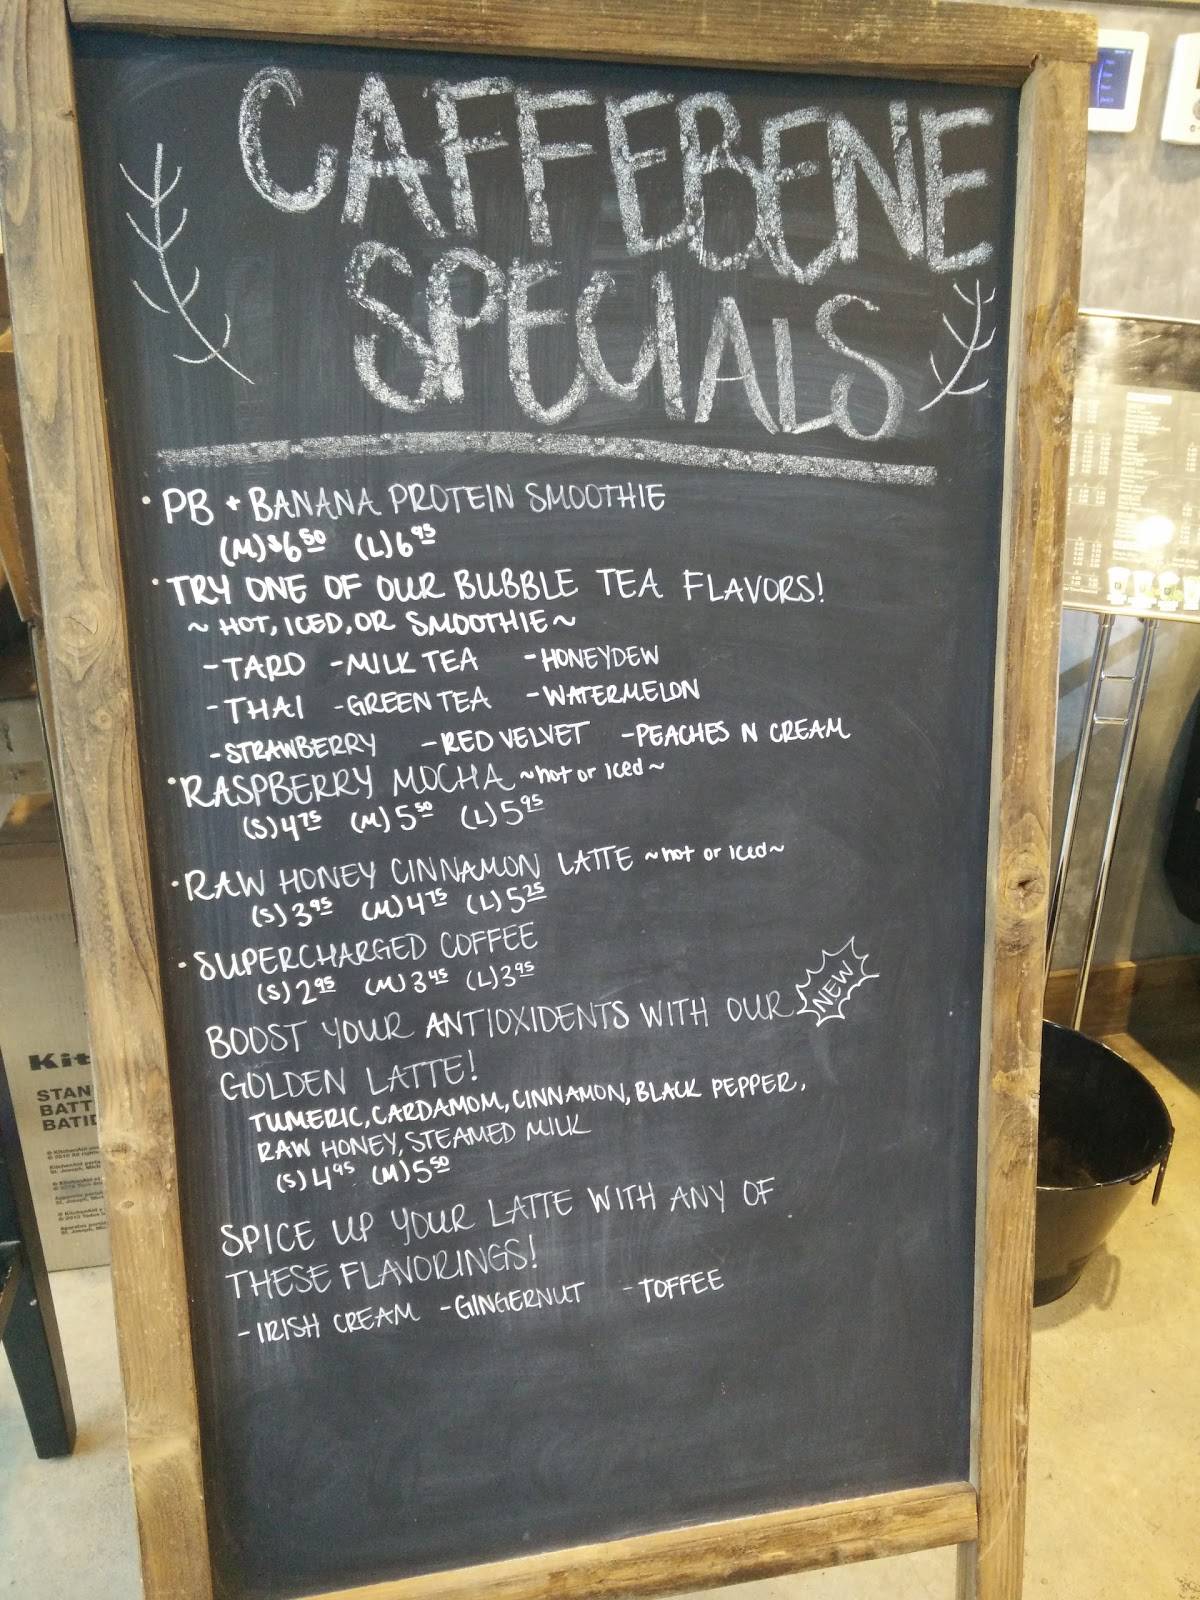 CAFFEBENE
SPECIALS
• PB + BANANA PROTEIN SMOOTHIE
(M) $6 50 (L) 6 95
• TRY ONE OF OUR BUBBLE TEA FLAVORS!
~ HOT, ICED, OR SMOOTHIE ~
- TARO - MILK TEA - HONEYDEW
- THAI - GREEN TEA - WATERMELON
- STRAWBERRY - RED VELVET - PEACHES N CREAM
• RASPBERRY MOCHA ~ hot or iced ~
(S) 4 75 (M) 5 50 (L) 5 95
• RAW HONEY CINNAMON LATTE ~ hot or iced ~
(S) 3 95 (M) 4 75 (L) 5 25
• SUPERCHARGED COFFEE
(S) 2 95 (M) 3 45 (L) 3 95
BOOST YOUR ANTIOXIDENTS WITH OUR NEW
GOLDEN LATTE!
TUMERIC, CARDAMOM, CINNAMON, BLACK PEPPER,
RAW HONEY, STEAMED MILK
(S) 4 95 (M) 5 50
SPICE UP YOUR LATTE WITH ANY OF
THESE FLAVORINGS!
- IRISH CREAM - GINGERNUT - TOFFEE
Kit
STAN
BATT
BATI